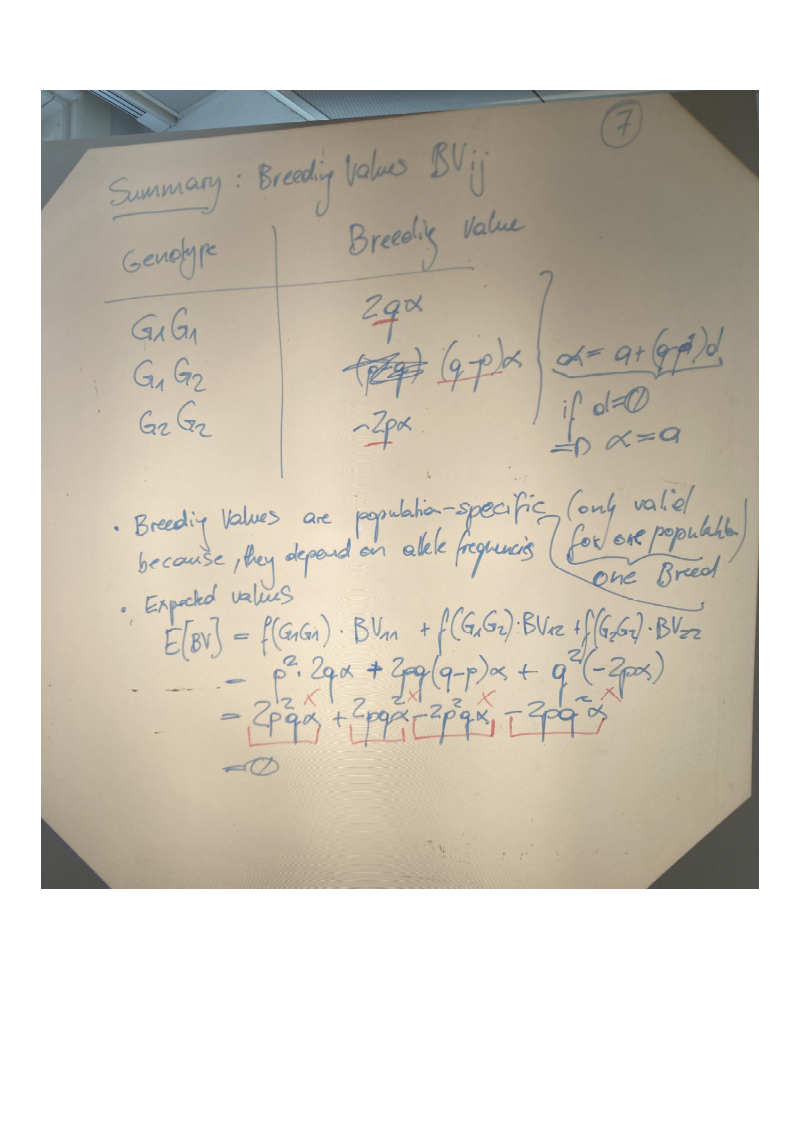 7
Summary: Breeding Values BVij
Genotype Breeding Value
G1G1 2qα
G1G2 (q-p)α
G2G2 -2pα
α = a+(q-p)d
if d=0
=D α=a
· Breeding Values are population-specific (only valid
for one population)
because, they depend on allele frequencies
one Breed
· Expected values
E[BV] = f(G1G1)·BV11 + f(G1G2)·BV12 + f(G2G2)·BV22
= p²·2qα + 2pq(q-p)α + q²(-2pα)
= 2p²qα + 2pq²α - 2p²qα - 2pq²α
= 0